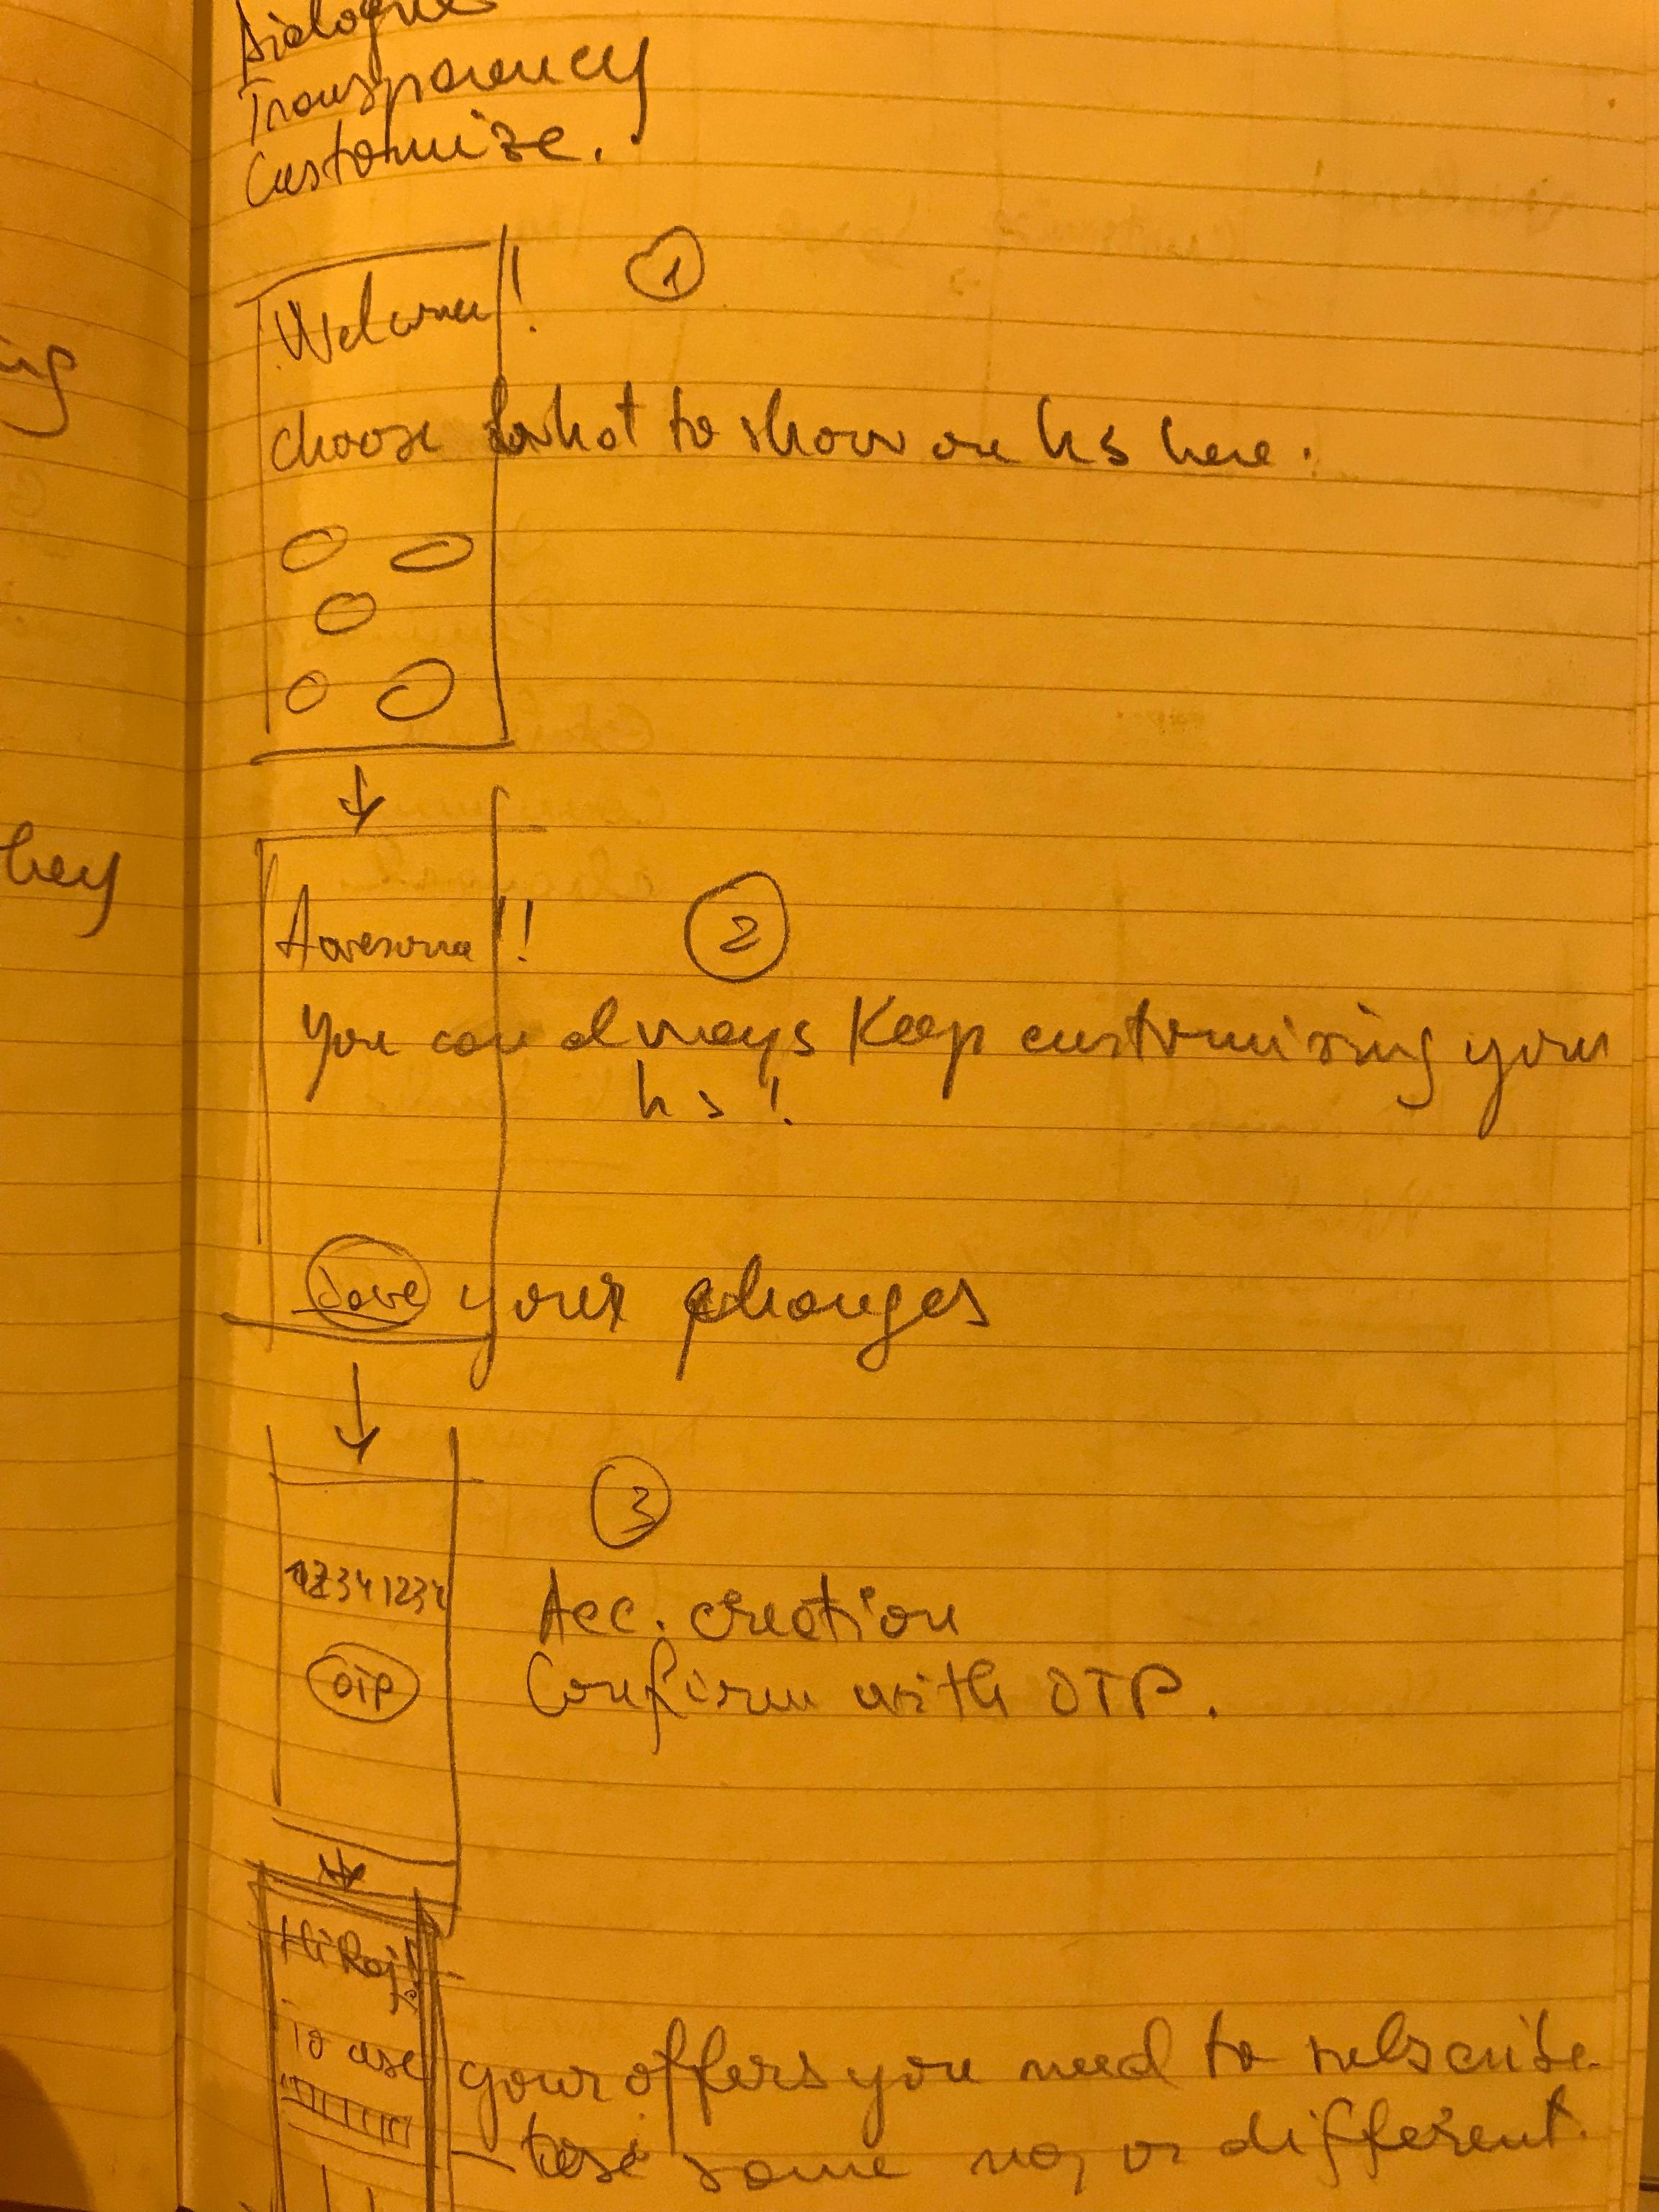 Dialogue
Transparency
Customize.
Welcome!!
1
choose what to show on hs here.
Awesome!!
2
You can always keep customizing your
hs!
Save your changes
3
12341234
Acc. creation
OTP
Confirm with OTP.
Hi Raj!
To use your offers you need to subscribe
same no, or different.
hey